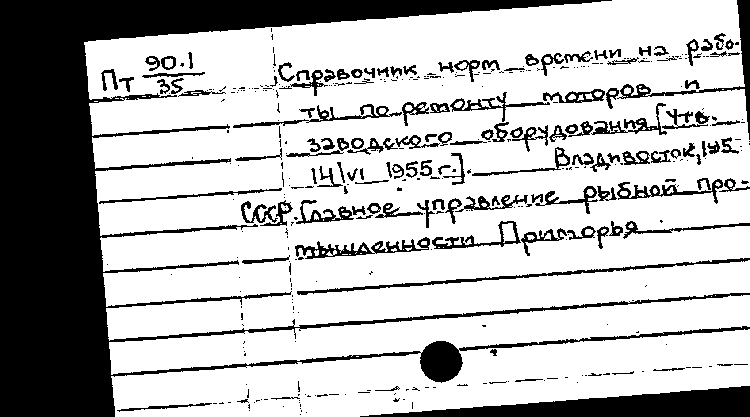 Пт 90.1/35
Справочник норм времени на рабо-
ты по ремонту моторов и
заводского оборудования [Утв.
14/VI 1955 г.]. Владивосток, 195
СССР. Главное управление рыбной про-
мышленности Приморья